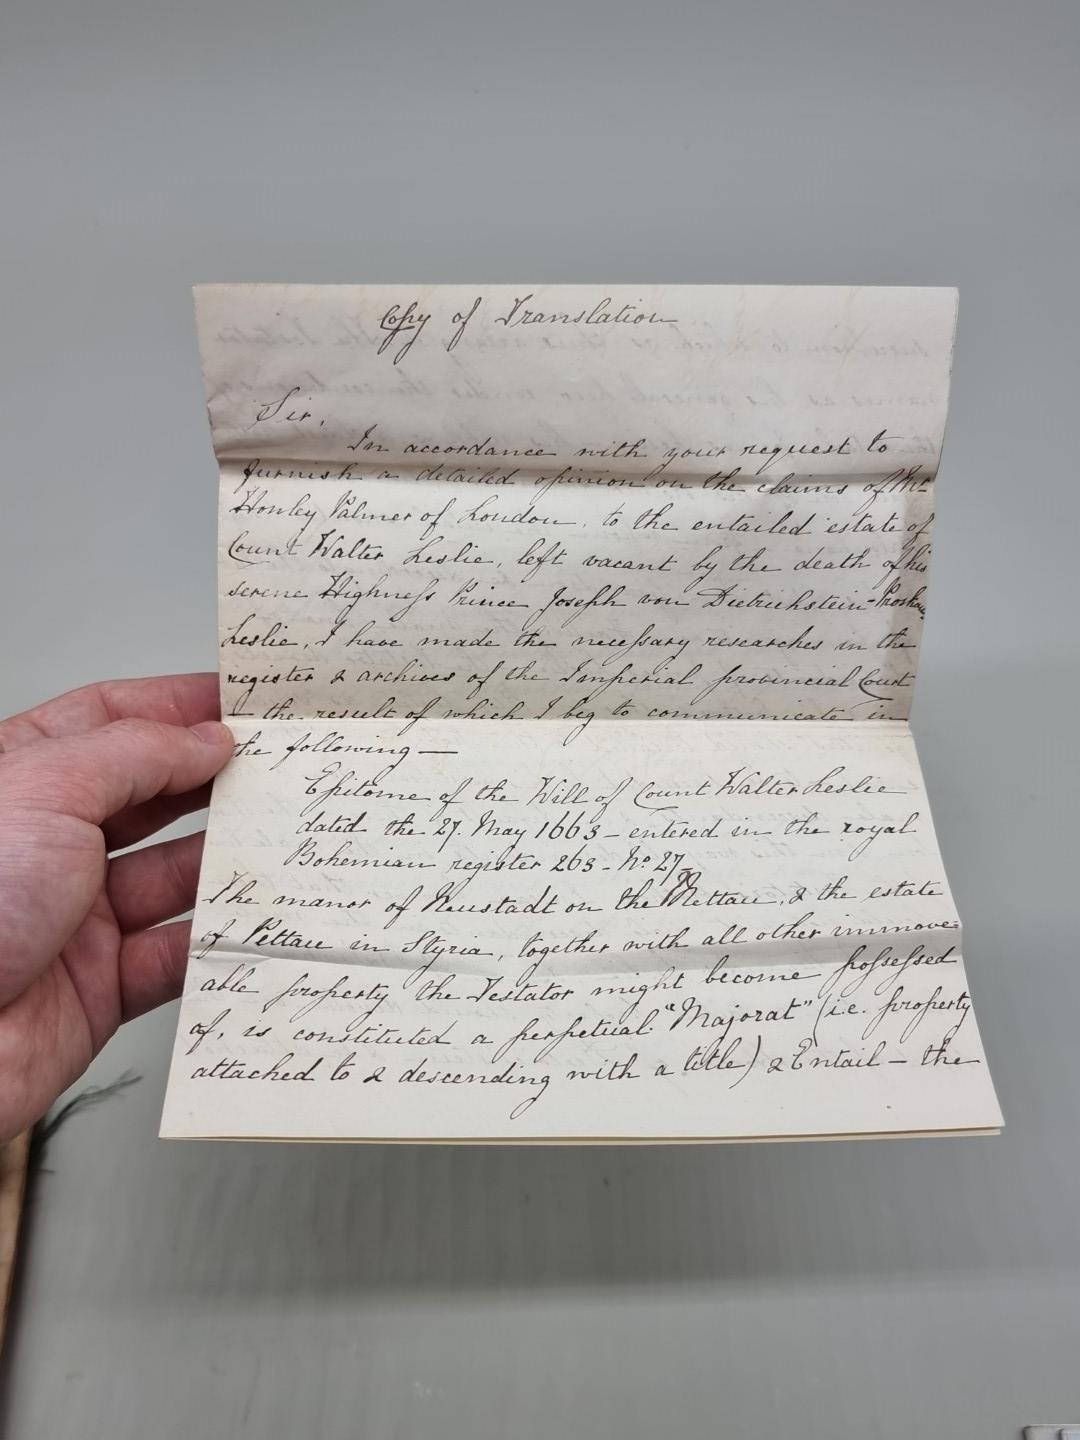 Copy of Translation
Sir,
In accordance with your request to
furnish a detailed opinion on the claims of Mr
Honley Palmer of London, to the entailed estate of
Count Walter Leslie, left vacant by the death of his
serene Highness Prince Joseph von Dietrichstein-Proskau-
Leslie, I have made the necessary researches in the
register & archives of the Imperial provincial Court
— the result of which I beg to communicate in
the following —
Epitome of the Will of Count Walter Leslie
dated the 27. May 1663 - entered in the royal
Bohemian register 263 - No. 27
The manor of Neustadt on the Mettau, & the estate
of Pettau in Styria, together with all other immove=
able property the Testator might become possessed
of, is constituted a perpetual "Majorat" (i.e. property
attached to & descending with a title) & Entail — the